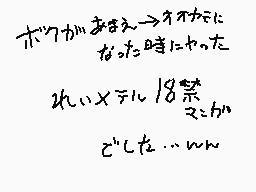 ボクがあまえ→オオカミに
なった時にやった
れいメテル18禁
マンガ
でした…ww